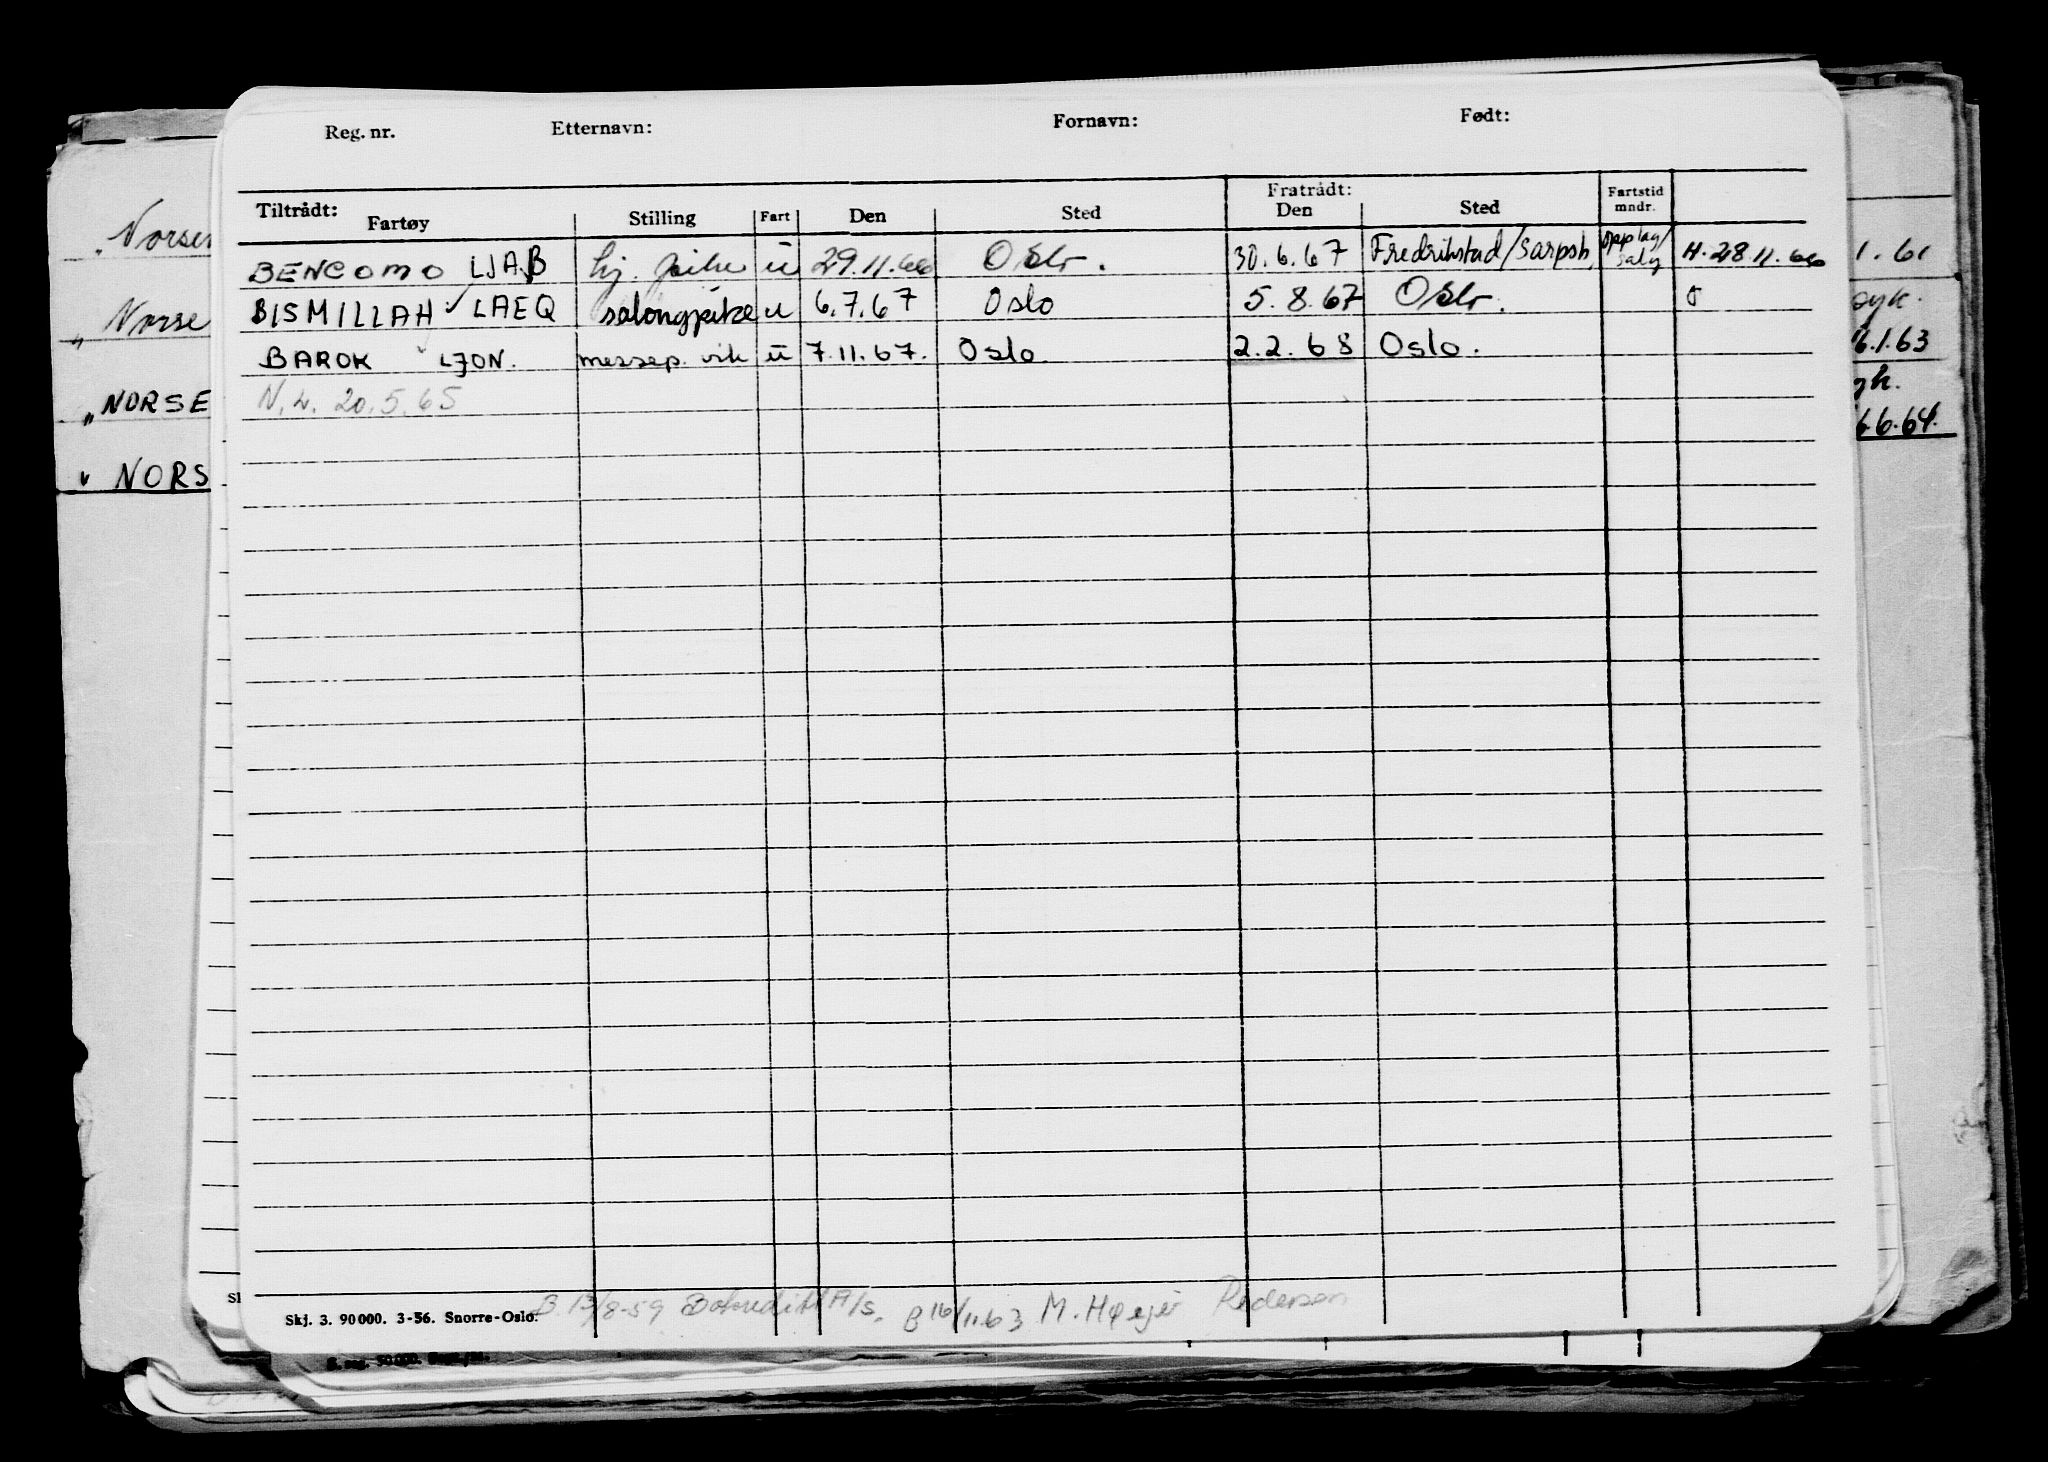 Reg. nr. Etternavn: Fornavn: Født:
Tiltrådt: Fratrådt:
Fartøy Stilling Fart Den Sted Den Sted Fartstid mndr.
BENCOMO LJAB lrj. pike u 29.11.66 Oslo. 30.6.67 Fredrikstad/Sarpsb. opplag/salg H. 28.11.66
BISMILLAH LAEQ salongpike u 6.7.67 Oslo 5.8.67 Oslo.
BAROK LJON. messep. vik u 7.11.67. Oslo 2.2.68 Oslo.
N.L. 20.5.65
B 13/8-59 A/S. B 16/11.63 M. Høyer Pedersen
Skj. 3. 90000. 3-56. Snorre-Oslo.
Norse
Norse
" NORSE
" NORS
1.61
6.1.63
6.6.64.